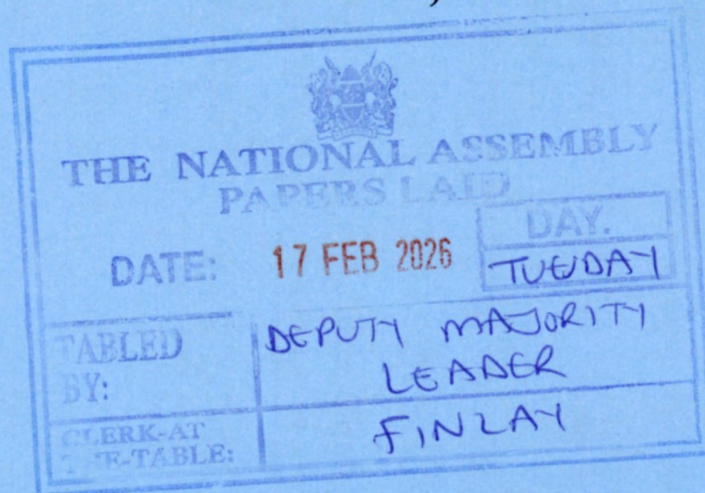 THE NATIONAL ASSEMBLY
PAPERS LAID
DATE: 17 FEB 2026
DAY.
TUESDAY
TABLED BY:
DEPUTY MAJORITY LEADER
CLERK-AT THE-TABLE:
FINLAY